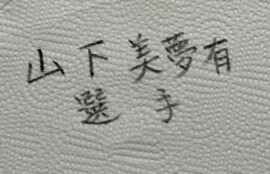 山下美夢有
選手